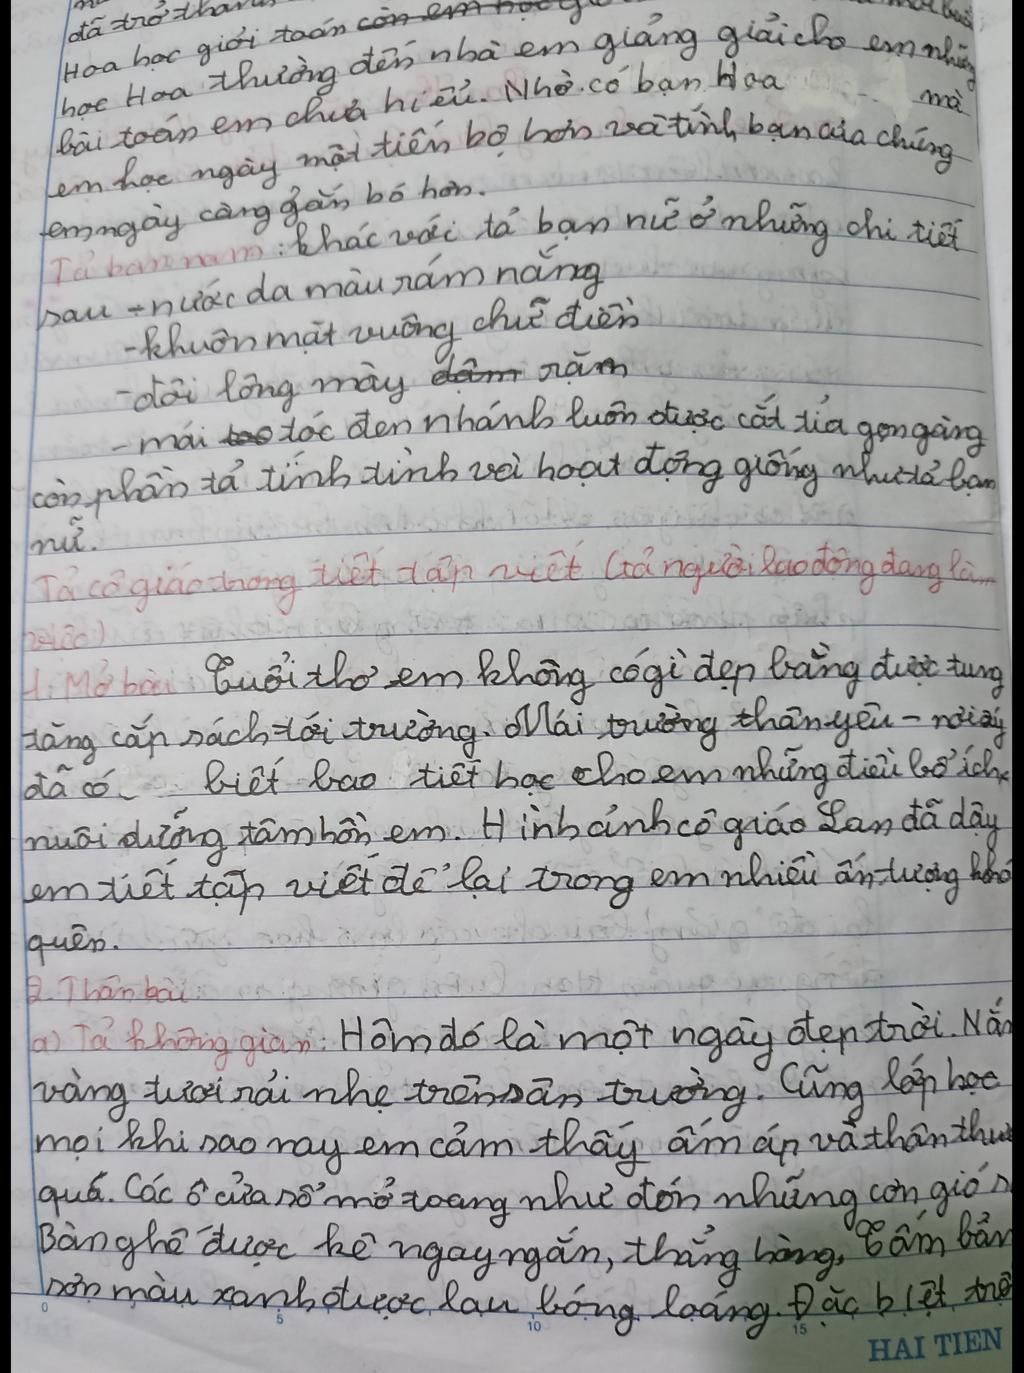 đã trở thành
Hoa học giỏi toán còn em học
học Hoa thường đến nhà em giảng giải cho em những
bài toán em chưa hiểu. Nhờ có bạn Hoa mà
em học ngày một tiến bộ hơn và tình bạn của chúng
em ngày càng gắn bó hơn.
Tả bạn nam: khác với tả bạn nữ ở những chi tiết
sau - nước da màu rám nắng
- khuôn mặt vuông chữ điền
- đôi lông mày dâm rặm
- mái tóc đen nhánh luôn được cắt tỉa gọn gàng
còn phần tả tính tình và hoạt động giống như tả bạn
nữ.
Tả cô giáo trong tiết tập viết (tả người lao động đang làm
việc)
1. Mở bài: Tuổi thơ em không có gì đẹp bằng được tung
tăng cắp sách tới trường. Mái trường thân yêu - nơi ấy
đã có biết bao tiết học cho em những điều bổ ích,
nuôi dưỡng tâm hồn em. Hình ảnh cô giáo Lan đã dậy
em tiết tập viết để lại trong em nhiều ấn tượng khó
quên.
2. Thân bài
a) Tả không gian: Hôm đó là một ngày đẹp trời. Nắn
vàng tươi rải nhẹ trên sân trường. Cũng lớp học
mọi khi sao nay em cảm thấy ấm áp và thân thu
quá. Các ô cửa sổ mở toang như đón những cơn gió
Bàn ghế được kê ngay ngắn, thẳng hàng. Tấm bản
sơn màu xanh được lau bóng loáng. Đặc biệt trê
0 5 10 15
HAI TIEN